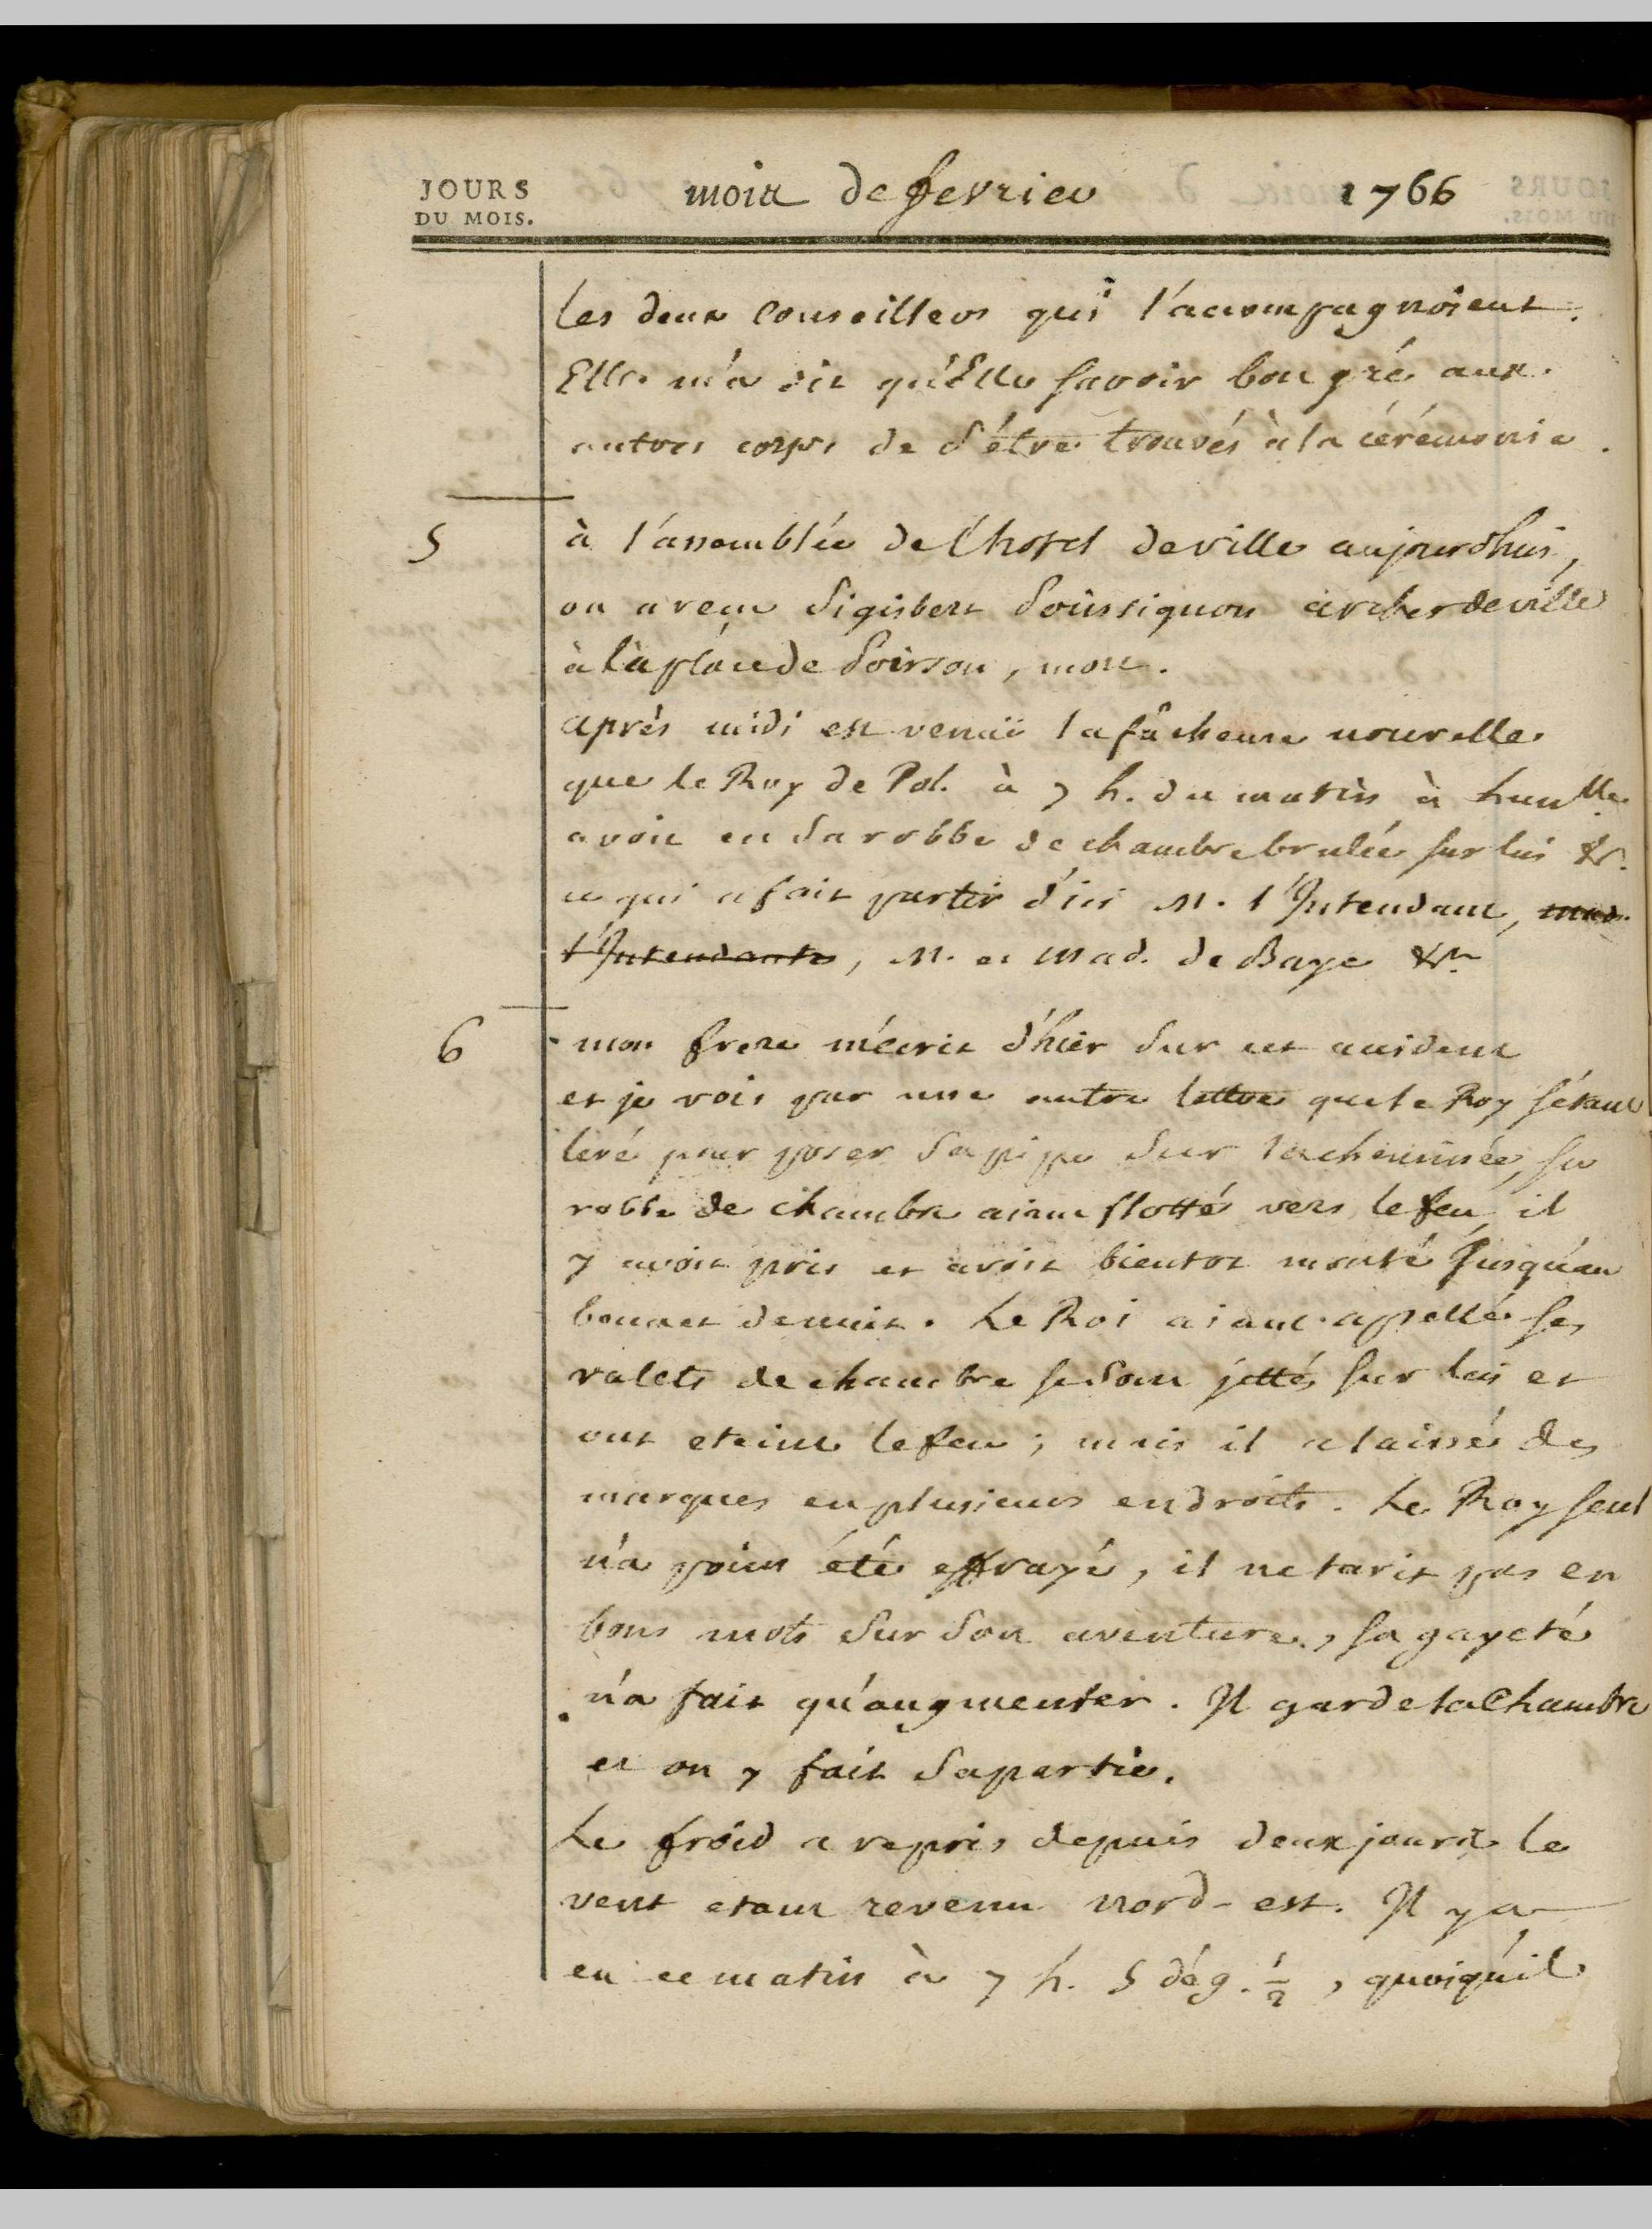 JOURS
DU MOIS.
mois de fevrier 1766
les deux Conseillers qui l'acompagnoient.
Elle m'a dit qu'Elle savoit bon gré aux
autres corps de s'être trouvés à la cérémonie.
5 à l'assemblée de l'hotel de ville aujourd'hui,
on a reçu Sigisbert archer de ville
à la place de Poirson, mort.
après midi est venuë la fâcheuse nouvelle
que le Roy de Pol. à 7 h. du matin à Lunlle.
avoit eu sa robbe de chambre brulée sur lui &c.
ce qui a fait partir d'ici M. l'Intendant, mad.
l'Intendante, M. et Mad. de Baye &c.
6 mon frere m'écrit d'hier sur cet accident
et je vois par une autre lettre que le Roy s'étant
levé pour poser sa pipe sur la cheminée, sa
robbe de chambre aiant flotté vers le feu, il
y avoit pris et avoit bientot monté jusqu'au
bonnet de nuit. Le Roi aiant appellé ses
valets de chambre se sont jettés sur lui et
ont eteint le feu ; mais il a laissé des
marques en plusieurs endroits. Le Roy seul
n'a point été effrayé, il ne tarit pas en
bons mots sur son aventure, sa gayeté
n'a fait qu'augmenter. Il garde la Chambre
et on y fait sa partie.
Le froid a repris depuis deux jours le
vent etant revenu nord-est. Il y a
eu ce matin à 7 h. 5 dég. 1/2, quoiqu'il